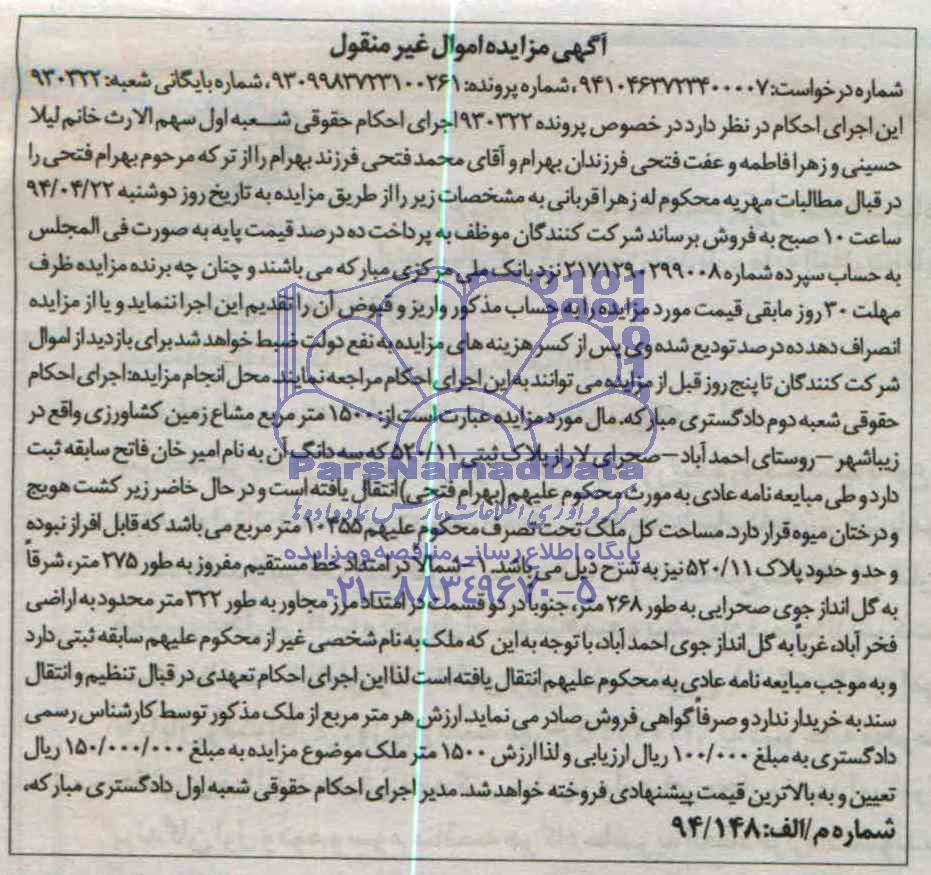 آگهی مزایده اموال غیر منقول
شماره درخواست: ۹۴۱۰۴۶۳۷۲۳۴۰۰۰۰۷، شماره پرونده: ۹۳۰۹۹۸۳۷۲۳۱۰۰۲۶۱، شماره بایگانی شعبه: ۹۳۰۳۲۲
این اجرای احکام در نظر دارد در خصوص پرونده ۹۳۰۳۲۲ اجرای احکام حقوقی شعبه اول سهم الارث خانم لیلا
حسینی و زهرا فاطمه و عفت فتحی فرزندان بهرام و آقای محمد فتحی فرزند بهرام را از ترکه مرحوم بهرام فتحی را
در قبال مطالبات مهریه محکوم له زهرا قربانی به مشخصات زیر را از طریق مزایده به تاریخ روز دوشنبه ۹۴/۰۴/۲۲
ساعت ۱۰ صبح به فروش برساند شرکت کنندگان موظف به پرداخت ده درصد قیمت پایه به صورت فی المجلس
به حساب سپرده شماره ۲۱۷۱۲۹۰۲۹۹۰۰۸ نزد بانک ملی مرکزی مبارکه می باشند و چنان چه برنده مزایده ظرف
مهلت ۳۰ روز مابقی قیمت مورد مزایده را به حساب مذکور واریز و قبوض آن را تقدیم این اجرا ننماید و یا از مزایده
انصراف دهد ده درصد تودیع شده وی پس از کسر هزینه های مزایده به نفع دولت ضبط خواهد شد برای بازدید از اموال
شرکت کنندگان تا پنج روز قبل از مزایده می توانند به این اجرای احکام مراجعه نمایند. محل انجام مزایده: اجرای احکام
حقوقی شعبه دوم دادگستری مبارکه. مال مورد مزایده عبارت است از: ۱۵۰۰ متر مربع مشاع زمین کشاورزی واقع در
زیباشهر – روستای احمد آباد – صحرای لار از پلاک ثبتی ۵۲۰/۱۱ که سه دانگ آن به نام امیر خان فاتح سابقه ثبت
دارد و طی مبایعه نامه عادی به مورث محکوم علیهم (بهرام فتحی) انتقال یافته است و در حال حاضر زیر کشت هویج
و درختان میوه قرار دارد. مساحت کل ملک تحت تصرف محکوم علیهم ۱۰۳۵۵ متر مربع می باشد که قابل افراز نبوده
و حد و حدود پلاک ۵۲۰/۱۱ نیز به شرح ذیل می باشد. ۱- شمالاً در امتداد خط مستقیم مفروز به طور ۲۷۵ متر، شرقاً
به گل انداز جوی صحرایی به طور ۲۶۸ متر، جنوباً در دو قسمت در امتداد مرز مجاور به طور ۳۲۲ متر محدود به اراضی
فخر آباد، غرباً به گل انداز جوی احمد آباد، با توجه به این که ملک به نام شخصی غیر از محکوم علیهم سابقه ثبتی دارد
و به موجب مبایعه نامه عادی به محکوم علیهم انتقال یافته است لذا این اجرای احکام تعهدی در قبال تنظیم و انتقال
سند به خریدار ندارد و صرفاً گواهی فروش صادر می نماید. ارزش هر متر مربع از ملک مذکور توسط کارشناس رسمی
دادگستری به مبلغ ۱۰۰/۰۰۰ ریال ارزیابی و لذا ارزش ۱۵۰۰ متر ملک موضوع مزایده به مبلغ ۱۵۰/۰۰۰/۰۰۰ ریال
تعیین و به بالاترین قیمت پیشنهادی فروخته خواهد شد. مدیر اجرای احکام حقوقی شعبه اول دادگستری مبارکه،
شماره م/الف: ۹۴/۱۴۸
ParsNamadData
مرکز فرآوری اطلاعات پارس نماد داده ها
پایگاه اطلاع رسانی مناقصه و مزایده
۰۲۱-۸۸۳۴۹۶۷۰-۵